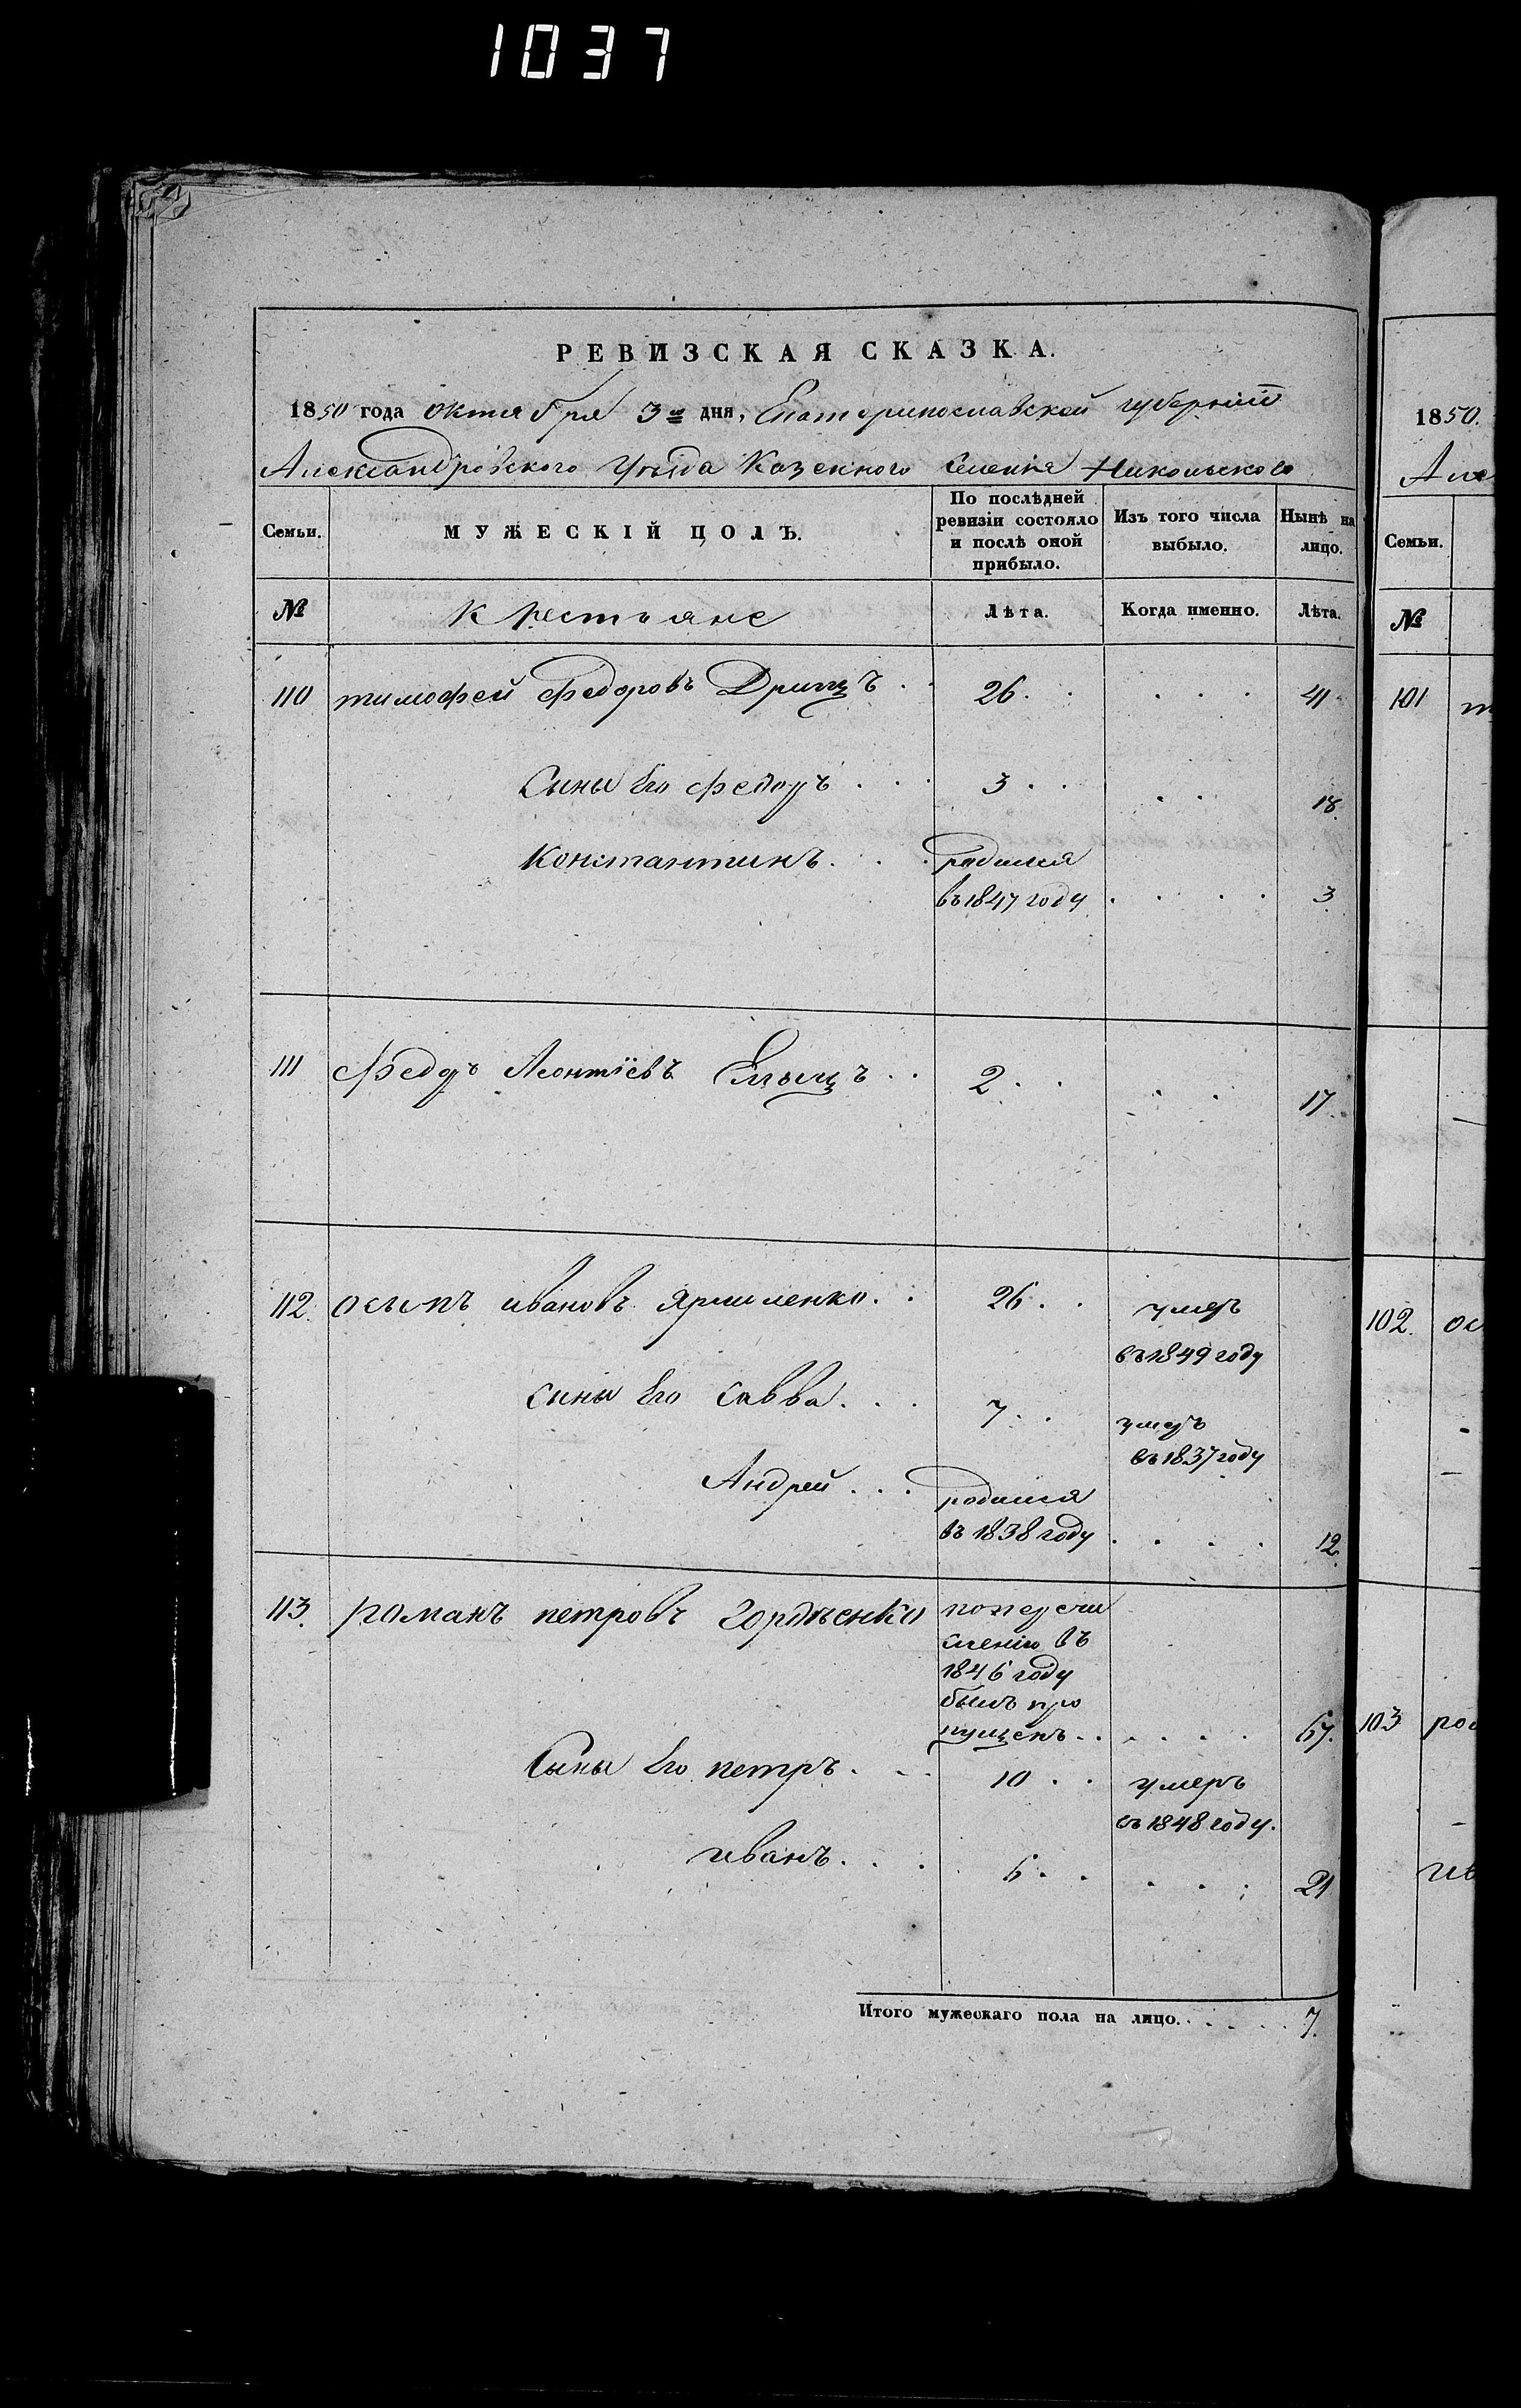 1037
РЕВИЗСКАЯ СКАЗКА.
1850 года октября 3го дня, Екатеринославской губерніи
Александровского Уѣзда Казенного Селенія Никольского
Семьи. МУЖЕСКІЙ ПОЛЪ. По послѣдней ревизіи состояло и послѣ оной прибыло. Изъ того числа выбыло. Нынѣ на лицо.
№ Крестьяне Лѣта. Когда именно. Лѣта.
110 тимофей федоровъ . . 26 . . . . . 41
Сыны Его федоръ . . . 3 . . . . 18
Константинъ . . . родился
въ 1847 году . . . . 3
111 федоръ Леонтіевъ . . 2 . . . . 17.
112. осипъ ивановъ Ярмиленко . . 26 . . умеръ
въ 1849 году
сыны Его Савва . . . 7 . . умеръ
въ 1837 году
Андрей . . . родился
въ 1838 году . . . . 12.
113. романъ петровъ Гордѣенко поперечи
сленію въ
1846 году
былъ про
пущенъ . . . . . . 67.
Сыны Его петръ . . . 10 . . умеръ
въ 1848 году.
иванъ . . . . 6 . . . . . 21
Итого мужескаго пола на лицо. . . . . . 7.
1850.
Але
Семьи.
№
101 т
102. ос
103 ро
ив